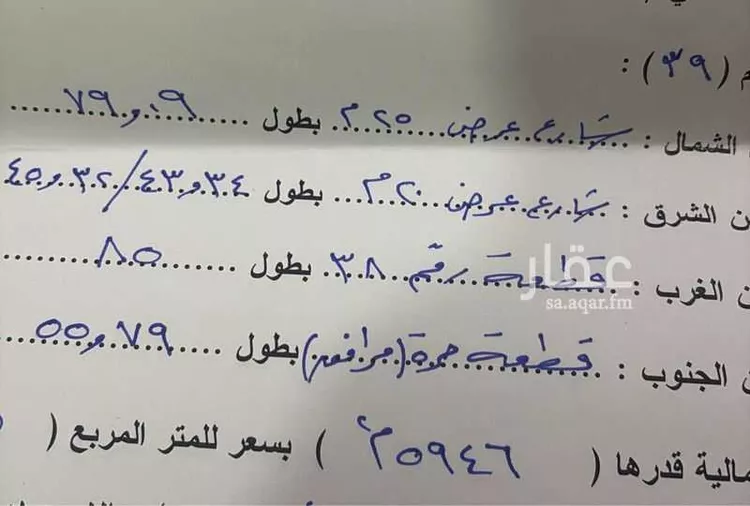 م (٣٩) :
الشمال : شارع عرض ٢٥ م بطول ٧٩و٠٩
ن الشرق : شارع عرض ٢٠ م بطول ٤٣و٣٤ / ٣٢و٤٥
ن الغرب : قطعة رقم ٣٨ بطول ٨٥
ن الجنوب : قطعة حرة (مرافق) بطول ٧٩و٥٥
مالية قدرها ( ٥٩٤٦م٢ ) بسعر للمتر المربع (
عقار
sa.aqar.fm